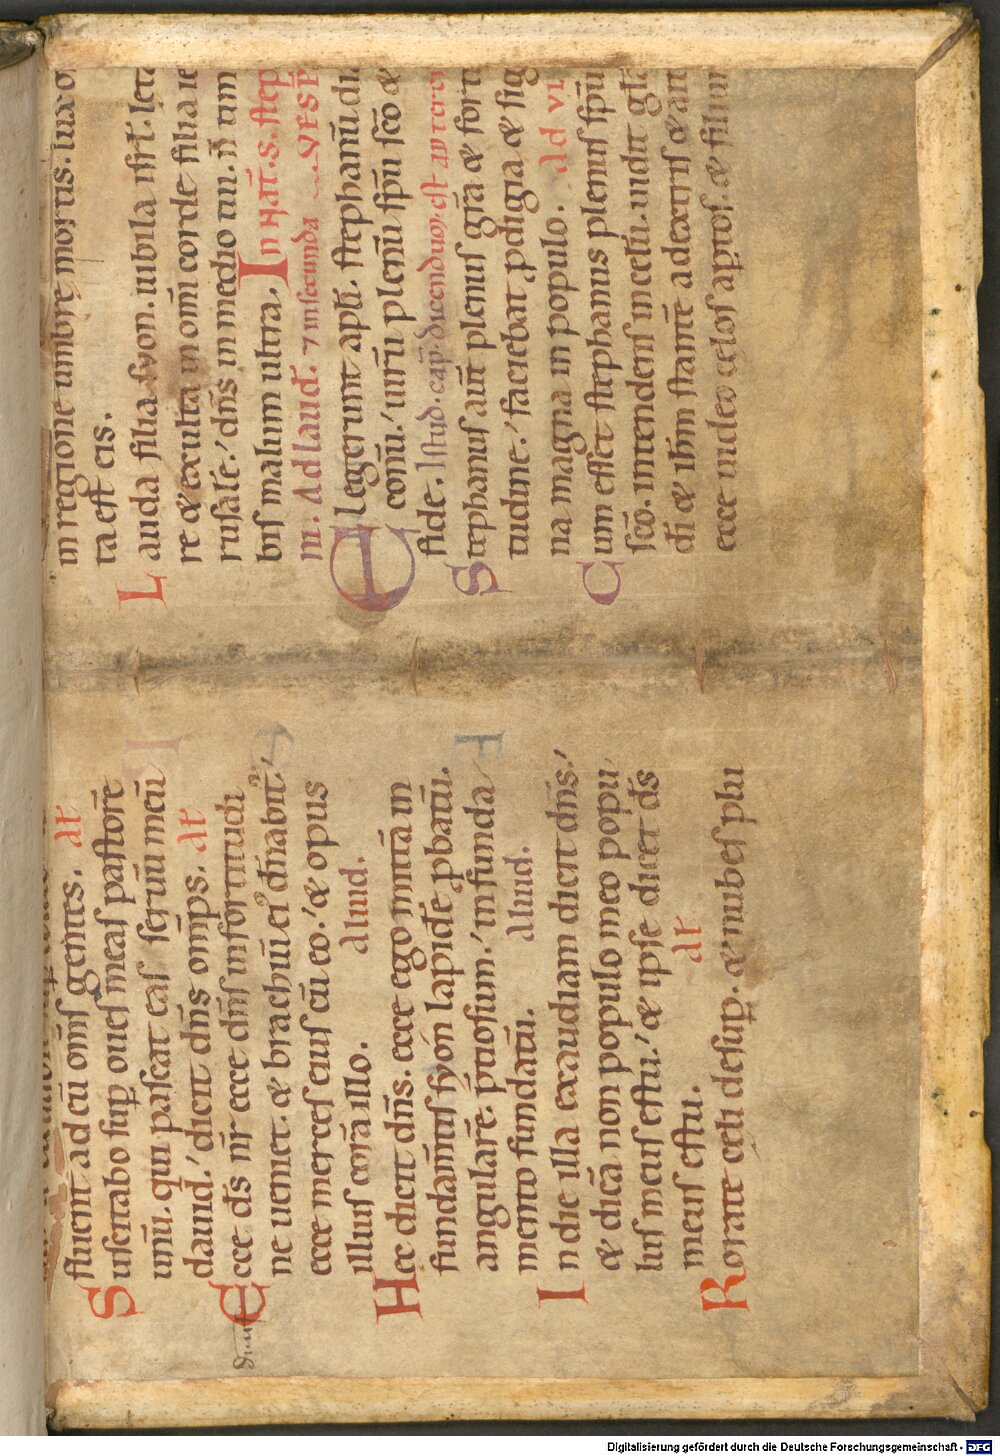 fluent ad eū om̄s gentes. at
Suscitabo sup̱ oues meas pastorē
unū. qui pascat eas seruū meū
dauid.' dicit dn̄s om̄ps. at
Ecce ds̄ nr̄ ecce dn̄s in fortitudi
ne ueniet. & brachiū ei᷒ dn̄abit᷒.'
ecce merces eius cū eo.' & opus
illius corā illo. aliud.
Hec dicit dn̄s. ecce ego mittā in
fundam̄tis syon lapidē ꝓbatū.
angularē. p̄tiosum.' in funda
mento fundatū. aliud.
In die illa exaudiam dicit dn̄s.'
& dicā non populo meo popu
lus meus es tu.' & ipse dicet ds̄
meus es tu. at
Rorate celi desup̱. & nubes plu
in regione umbre mortis. lux o
ta est eis.
Lauda filia syon. iubila isrl̄. leta
re & exulta in om̄i corde filia ie
rusalē.' dn̄s in medio tui. n̄ tim
bis malum ultra. In Nat̄. S. Step
m. Ad laud̄. ⁊ in secunda VESP̄
Elegerunt apl̄i. stephanū di
conū.' uirū plenū sp̄u sc̄o &
fide. Istud. cap̄. dicenduꝫ est ad tercī
Stephanus aut̄ plenus gr̄a & forti
tudine.' faciebat ꝓdigia & sig
na magna in populo. Ad VI.
Cum esset stephanus plenus sp̄u
sc̄o. intendens in celū. uidit gl̄a
di & ih̄m stantē a dextris & ait
ecce uideo celos aptos. & filium